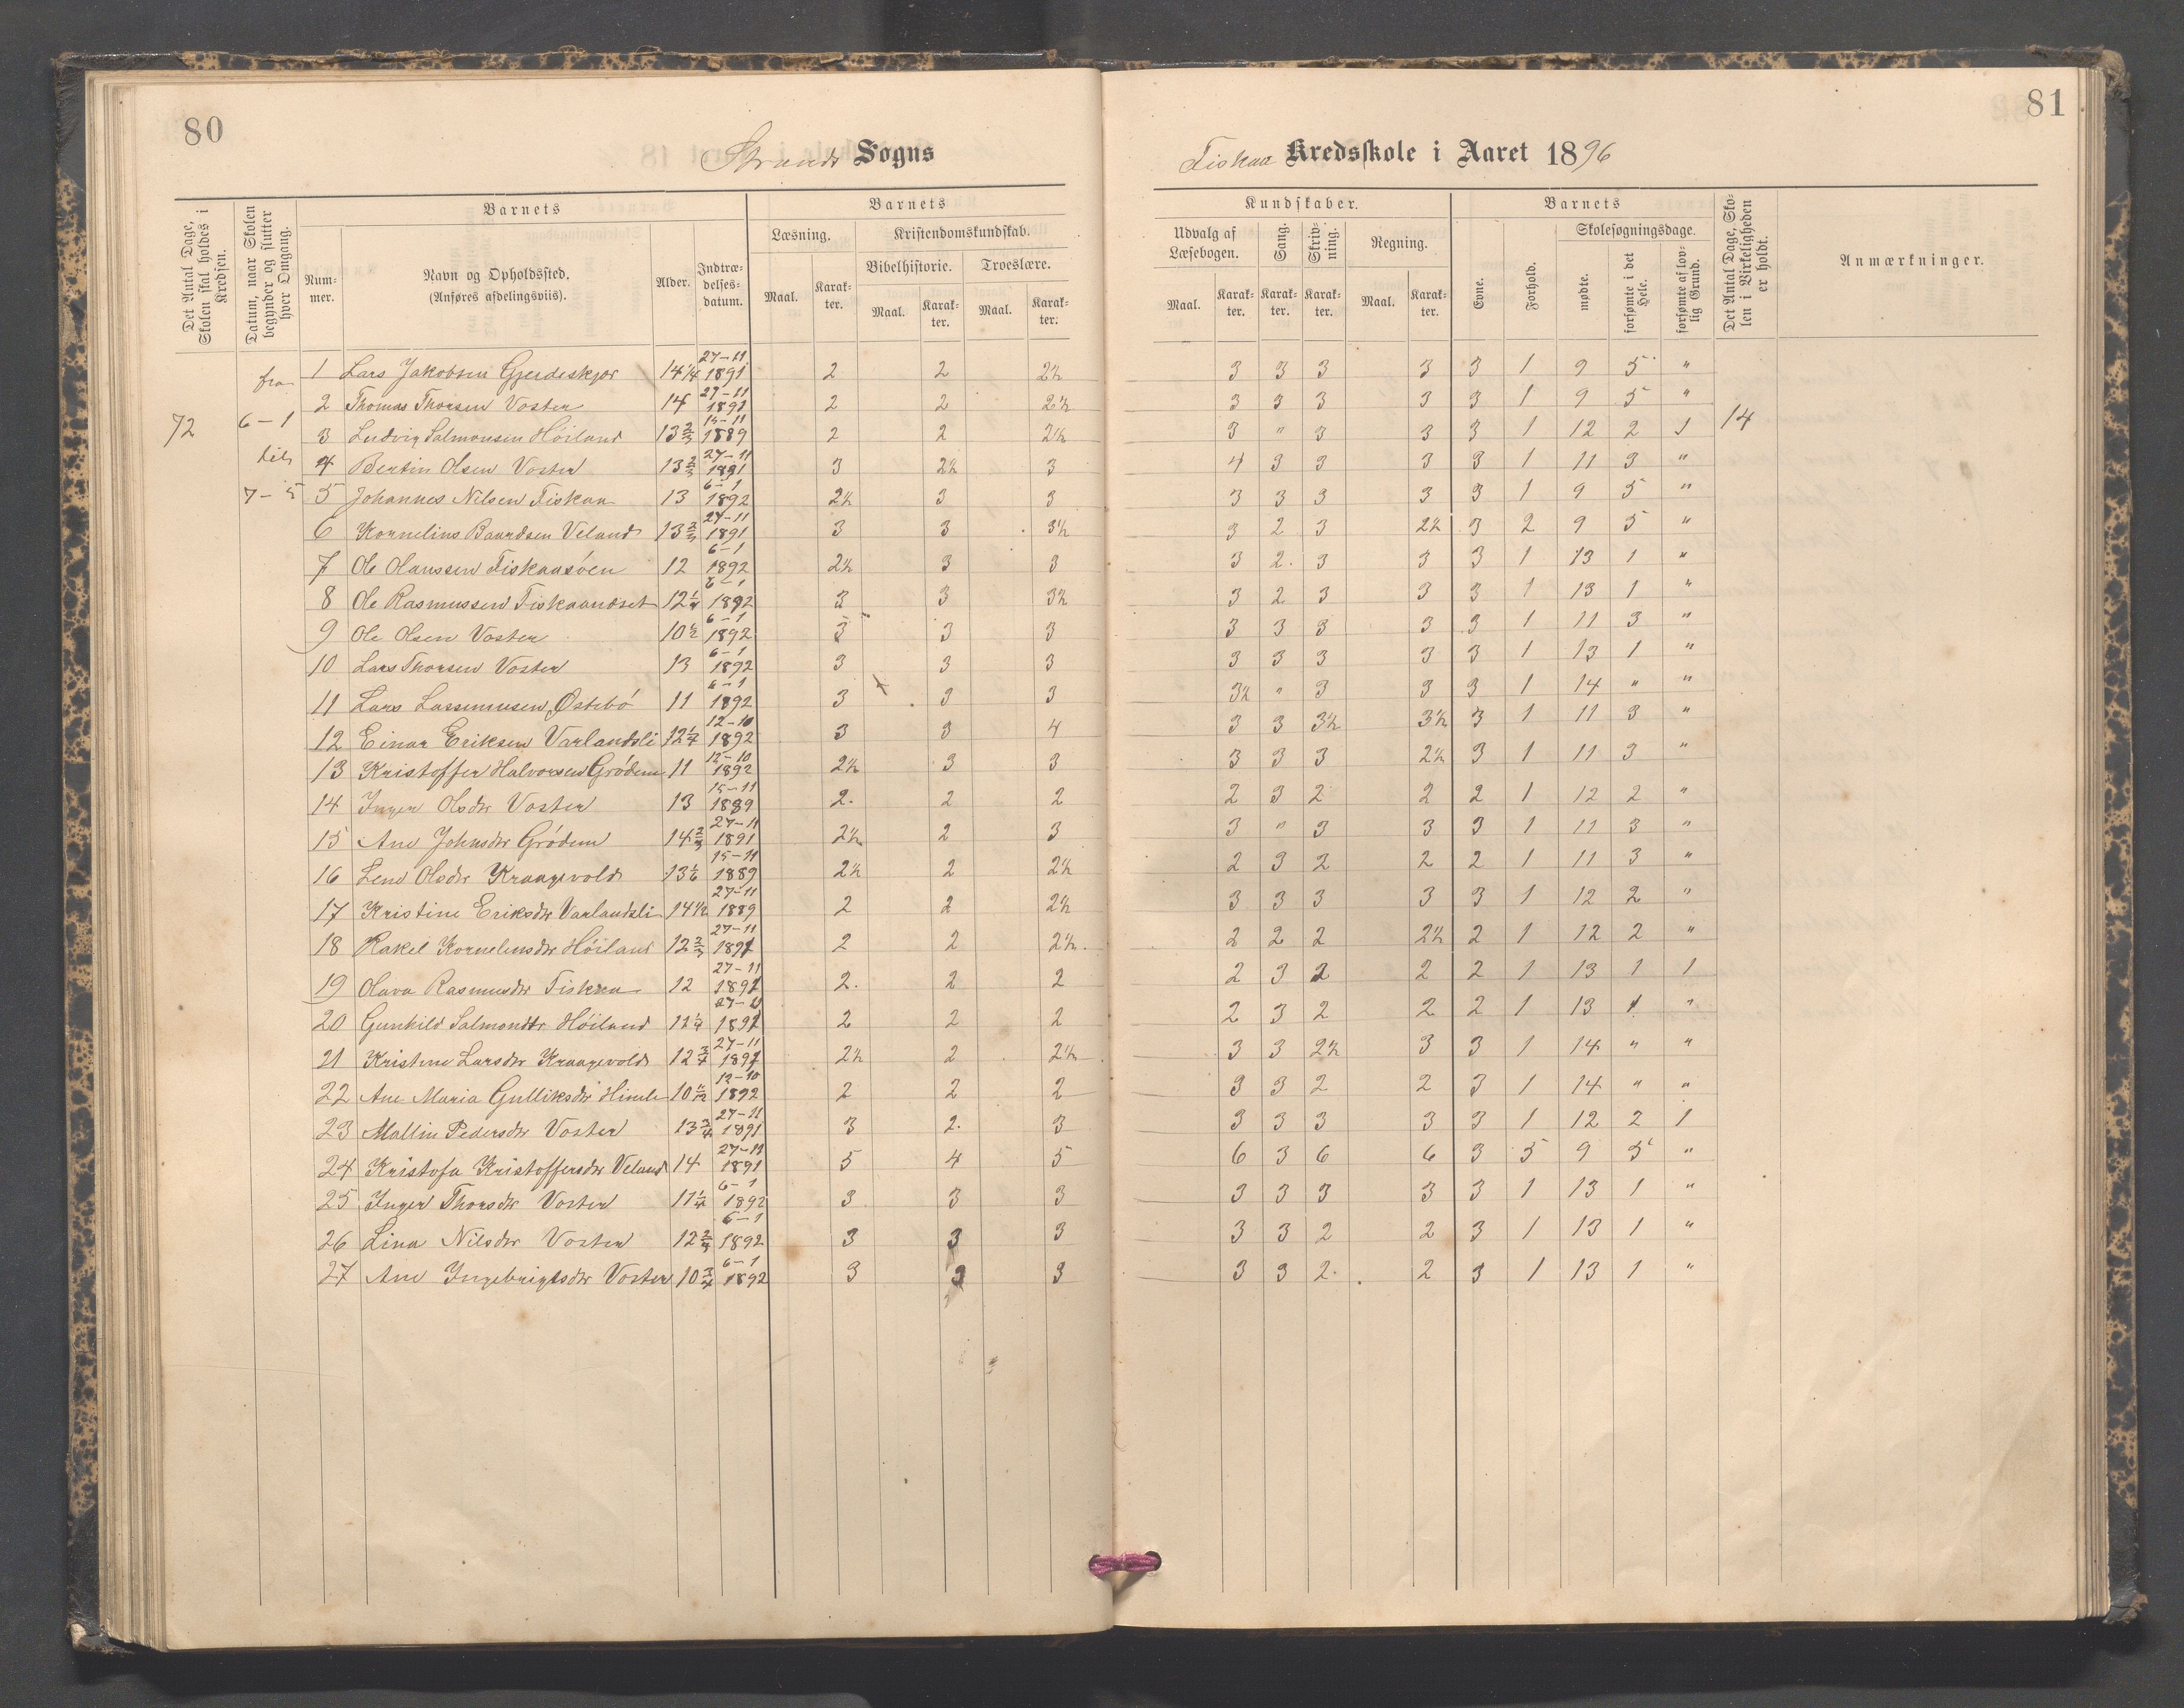 80
81
Strands Sogns
Fiskaa Kredsskole i Aaret 1896
Det Antal Dage, Skolen skal holdes i Kredsen.
Datum, naar Skolen begynder og slutter hver Omgang.
Barnets
Nummer.
Navn og Opholdssted.
(Anføres afdelingsviis).
Alder.
Indtrædelses-datum.
Barnets
Læsning.
Maal.
Karakter.
Kristendomskundskab.
Bibelhistorie.
Maal.
Karakter.
Troeslære.
Maal.
Karakter.
Kundskaber.
Udvalg af Læsebogen.
Maal.
Karakter.
Sang.
Karakter.
Skrivning.
Karakter.
Regning.
Maal.
Karakter.
Barnets
Evne.
Forhold.
Skolesøgningsdage.
mødte.
forsømte i det Hele.
forsømte af lovlig Grund.
Det Antal Dage, Skolen i Virkeligheden er holdt.
Anmærkninger.
72
fra
6-1
til
7-5
14
1 Lars Jakobsen Gjerdeskjør 14 1/4 27-11 1891 2 2 2½ 3 3 3 3 3 1 9 5 "
2 Thomas Thorsen Voster 14 27-11 1891 2 2 2½ 3 3 3 3 3 1 9 5 "
3 Ludvig Salmonsen Höiland 13 2/3 15-11 1889 2 2 2½ 3 " 3 3 3 1 12 2 1
4 Bertin Olsen Voster 13 2/3 27-11 1891 3 2½ 3 4 3 3 3 3 1 11 3 "
5 Johannes Nilsen Fiskaa 13 6-1 1892 2½ 3 3 3 3 3 3 3 1 9 5 "
6 Kornelius Baardsen Veland 13 2/3 27-11 1891 3 3 3½ 3 2 3 2½ 3 2 9 5 "
7 Ole Hanssen Fiskaaöen 12 6-1 1892 2½ 3 3 3 2 3 3 3 1 13 1 "
8 Ole Rasmussen Fiskaandset 12 1/4 6-1 1892 3 3 3½ 3 2 3 3 3 1 13 1 "
9 Ole Olsen Voster 10 1/2 6-1 1892 3 3 3 3 3 3 3 3 1 11 3 "
10 Lars Thorsen Voster 13 6-1 1892 3 3 3 3 3 3 3 3 1 13 1 "
11 Lars Lassemusen Østebö 11 6-1 1892 3 3 3 3½ " 3 3 3 1 14 " "
12 Einar Eriksen Varlandsli 12 1/4 12-10 1892 3 3 4 3 3 3½ 3½ 3 1 11 3 "
13 Kristoffer Halvorsen Grödem 11 12-10 1892 2½ 3 3 3 3 3 2½ 3 1 11 3 "
14 Inger Olsdtr Voster 13 15-11 1889 2. 2 2 2 3 2 2 2 1 12 2 "
15 Ane Johnsdtr Grödem 14 2/3 27-11 1891 2½ 2 3 3 " 3 3 3 1 11 3 "
16 Lene Olsdtr Kraagevold 13 1/6 15-11 1889 2½ 2 2½ 2 3 2 2 2 1 11 3 "
17 Kristine Eriksdtr Varlandsli 14 1/2 27-11 1889 2 2 2½ 3 3 3 3 3 1 12 2 "
18 Rakel Korneliusdtr Höiland 12 2/3 27-11 1891 2 2 2½. 2 2 2 2½ 2 1 12 2 "
19 Olava Rasmusdtr Fiskaa 12 27-11 1891 2. 2 2 2 3 2 2 2 1 13 1 1
20 Gunhild Salmondtr Höiland 11 1/4 27-11 1891 2 2 2 2 3 2 2 2 1 13 1 "
21 Kristine Larsdtr Kraagevold 12 3/4 27-11 1891 2½ 2 2½ 3 3 2½ 3 3 1 14 " "
22 Ane Maria Gulliksdtr Himle 10 12-10 1892 2 2 2 3 3 2 2 3 1 14 " "
23 Mallin Pedersdtr Voster 13 3/4 27-11 1891 3 2. 3 3 3 3 3 3 1 12 2 1
24 Kristofa Kristoffersdtr Veland 14 27-11 1891 5 4 5 6 3 6 6 3 5 9 5 "
25 Inger Thorsdtr Voster 11 1/4 6-1 1892 3 3 3 3 3 3 3 3 1 13 1 "
26 Lina Nilsdtr Voster 12 2/3 6-1 1892 3 3 3 3 3 2 2 3 1 13 1 "
27 Ane Ingebrigtsdtr Voster 10 3/4 6-1 1892 3 3 3 3 3 2. 2 3 1 13 1 "